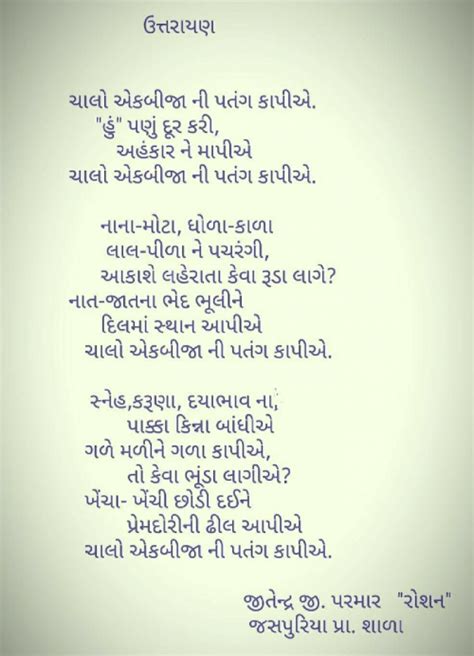 ઉત્તરાયણ
ચાલો એકબીજા ની પતંગ કાપીએ.
"હું" પણું દૂર કરી,
અહંકાર ને માપીએ
ચાલો એકબીજા ની પતંગ કાપીએ.
નાના-મોટા, ધોળા-કાળા
લાલ-પીળા ને પચરંગી,
આકાશે લહેરાતા કેવા રૂડા લાગે?
નાત-જાતના ભેદ ભૂલીને
દિલમાં સ્થાન આપીએ
ચાલો એકબીજા ની પતંગ કાપીએ.
સ્નેહ,કરૂણા, દયાભાવ ના,
પાક્કા કિન્ના બાંધીએ
ગળે મળીને ગળા કાપીએ,
તો કેવા ભૂંડા લાગીએ?
ખેંચા- ખેંચી છોડી દઈને
પ્રેમદોરીની ઢીલ આપીએ
ચાલો એકબીજા ની પતંગ કાપીએ.
જીતેન્દ્ર જી. પરમાર "રોશન"
જસપુરિયા પ્રા. શાળા